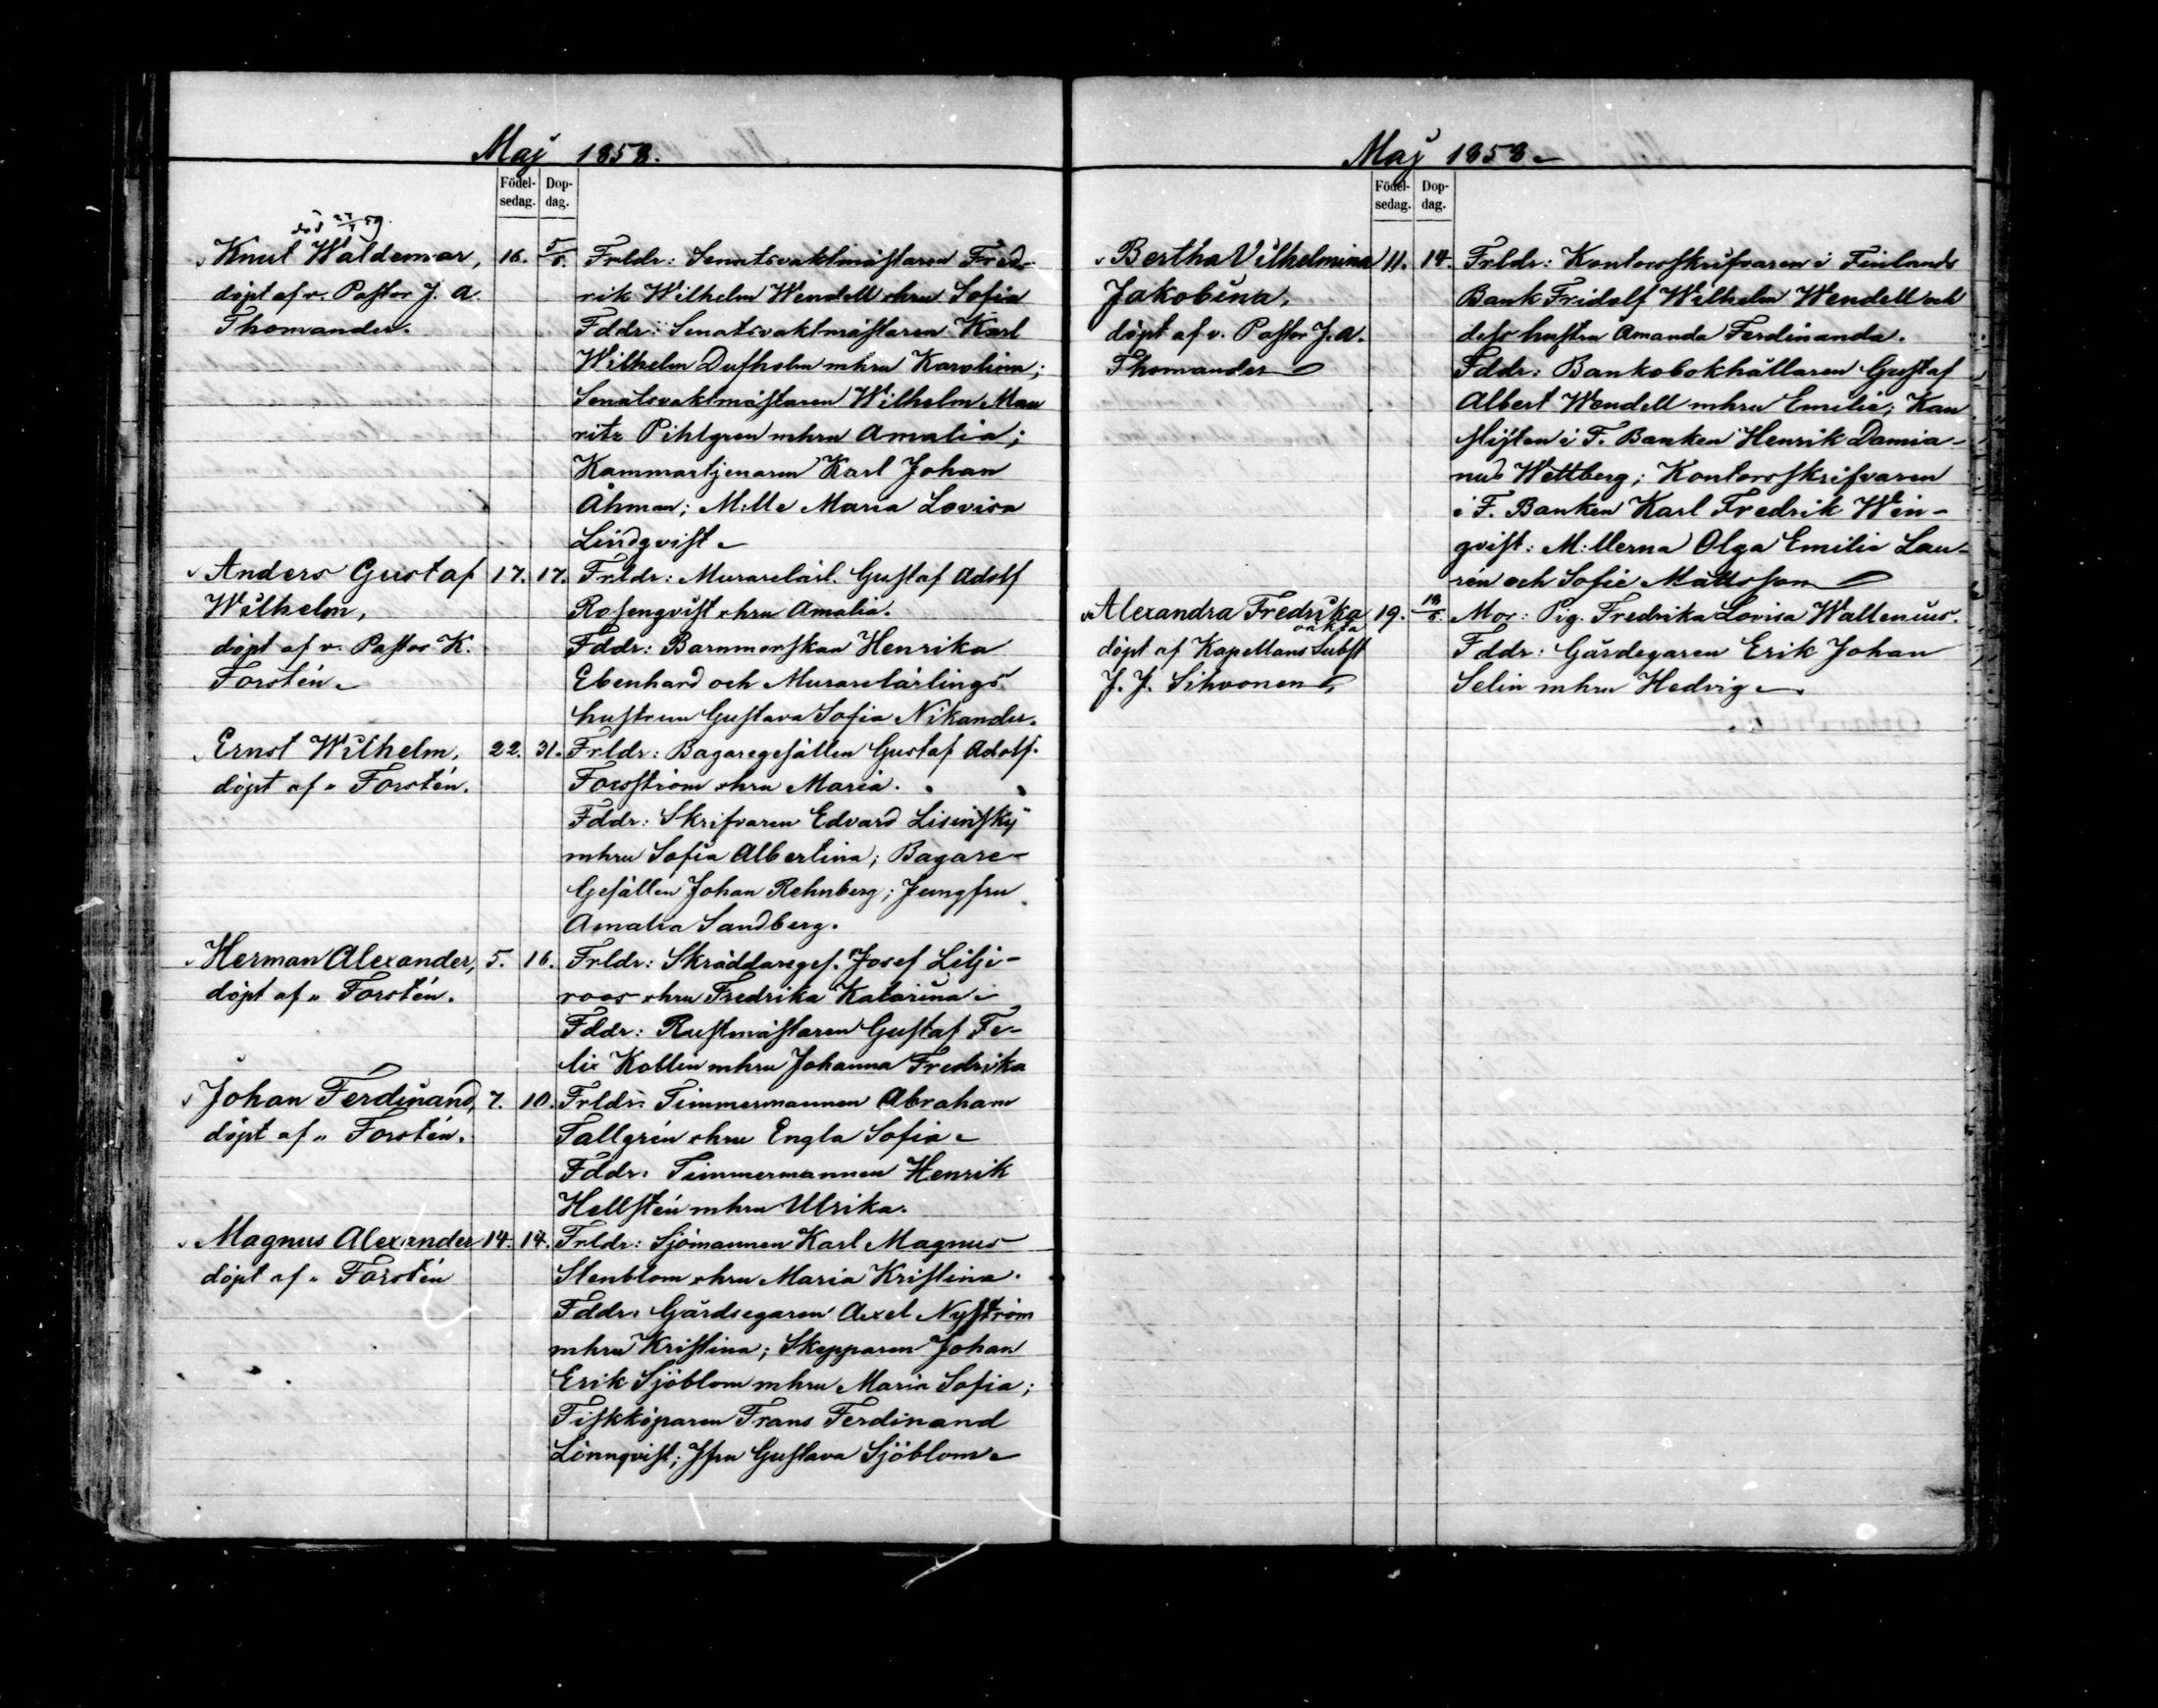 Maj 1858.
Födel-
sedag.
Dop-
dag.
död 27/1 59.
Knut Waldemar,
döpt af v. Pastor J. A.
Thomander.
16. 5/6.
Frldr: Senatsvaktmästaren Fred-
rik Wilhelm Wendell o hru Sofia
Fddr: Senatsvaktmästaren Karl
Wilhelm Dufholm m hru Karolina;
Senatsvaktmästaren Wilhelm Mau
ritz Pihlgren m hru Amalia;
Kammartjenaren Karl Johan
Åhman; M:lle Maria Lovisa
Lindqvist
Anders Gustaf
Wilhelm,
döpt af v. Pastor K.
Forstén
17. 17.
Frldr: Murarelärl. Gustaf Adolf
Rosenqvist o hru Amalia.
Fddr: Barnmorskan Henrika
Ebenhard och Murarelärlings
hustrun Gustava Sofia Nikander.
Ernst Wilhelm,
döpt af " Forstén.
22. 31.
Frldr: Bagaregesällen Gustaf Adolf
Forsström o hru Maria.
Fddr: Skrifvaren Edvard Lisinskij
m hru Sofia Albertina; Bagare-
Gesällen Johan Rehnberg; Jungfru
Amalia Sandberg.
Herman Alexander,
döpt af " Forstén.
5. 16.
Frldr: Skräddareges. Josef Lilje-
roos o hru Fredrika Katarina
Fddr: Rustmästaren Gustaf Fe-
lix Kollin m hru Johanna Fredrika
Johan Ferdinand,
döpt af " Forstén.
7. 10.
Frldr: Timmermannen Abraham
Tallgrén o hru Engla Sofia
Fddr: Timmermannen Henrik
Hellstén m hru Ulrika.
Magnus Alexander
döpt af " Forstén
14. 14.
Frldr: Sjömannen Karl Magnus
Stenblom o hru Maria Kristina.
Fddr: Gårdsegaren Axel Nyström
m hru Kristina; Skepparen Johan
Erik Sjöblom m hru Maria Sofia;
Fiskköparen Frans Ferdinand
Lönnqvist; Jfru Gustava Sjöblom
Maj 1858
Födel-
sedag.
Dop-
dag.
Bertha Vilhelmina
Jakobina,
döpt af v. Pastor J. A.
Thomander
11. 14.
Frldr: Kontorsskrifvaren i Finlands
Bank Fridolf Wilhelm Wendell och
dess hustru Amanda Ferdinanda.
Fddr: Bankobokhållaren Gustaf
Albert Wendell m hru Emilie; Kan
slisten i F. Banken Henrik Damia-
nus Wettberg; Kontorsskrifvaren
i F. Banken Karl Fredrik Win-
qvist: M:llerna Olga Emilia Lau-
rén och Sofie Mattsson
Alexandra Fredrika
oäkta
döpt af Kapellans Subst
J. J. Sihvonen
19. 18/6.
Mor: Pig. Fredrika Lovisa Wallenius.
Fddr: Gårdegaren Erik Johan
Selin m hru Hedvig